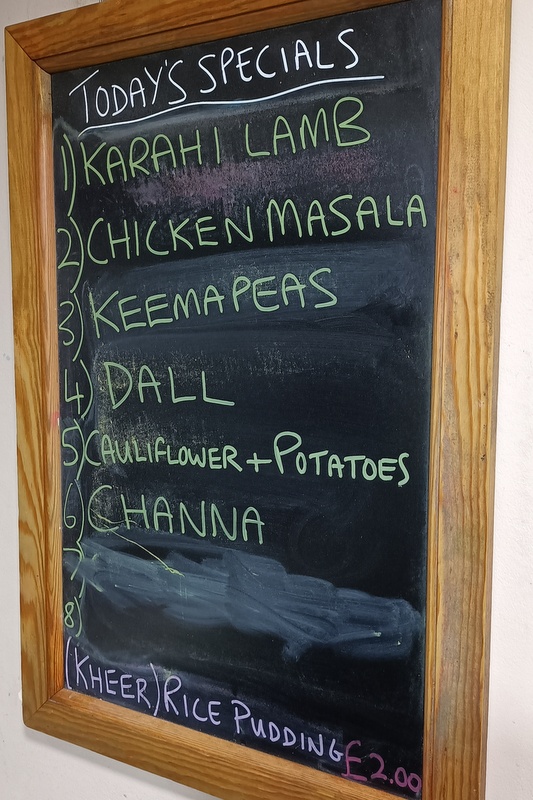 TODAY'S SPECIALS
1) KARAHI LAMB
2) CHICKEN MASALA
3) KEEMA PEAS
4) DALL
5) CAULIFLOWER + POTATOES
6) CHANNA
7)
8)
(KHEER) RICE PUDDING £2.00